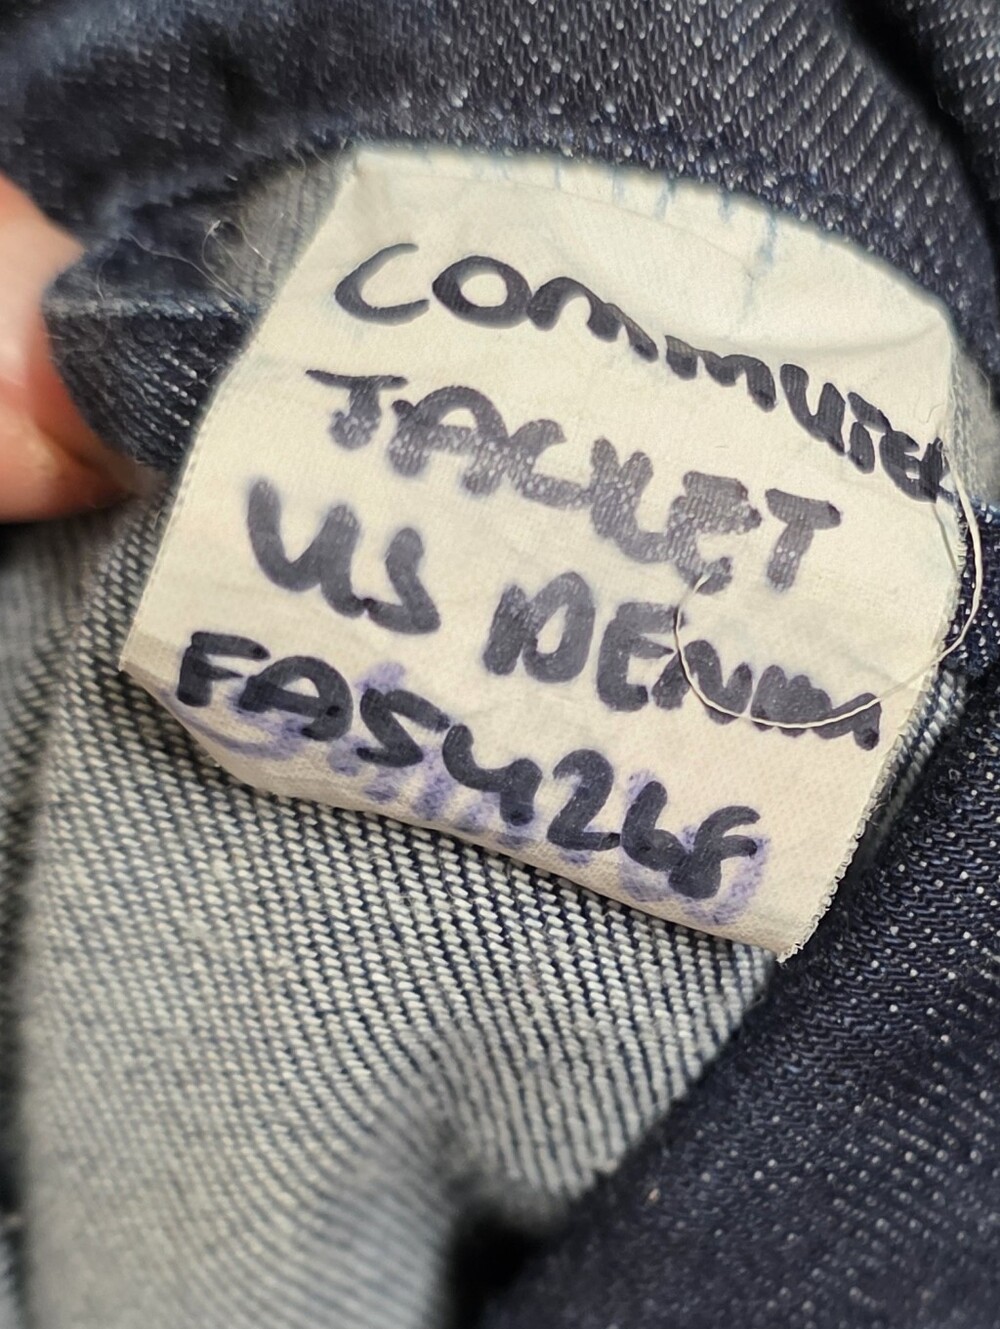 COMMUTER
JACKET
US DENIM
FAS426F